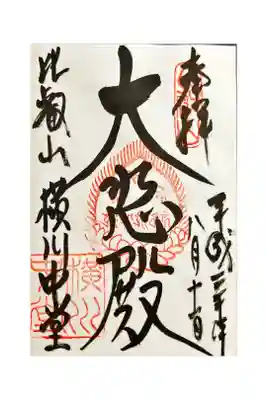 奉拝
平成三十年
八月十一日
大悲殿
比叡山 横川中堂